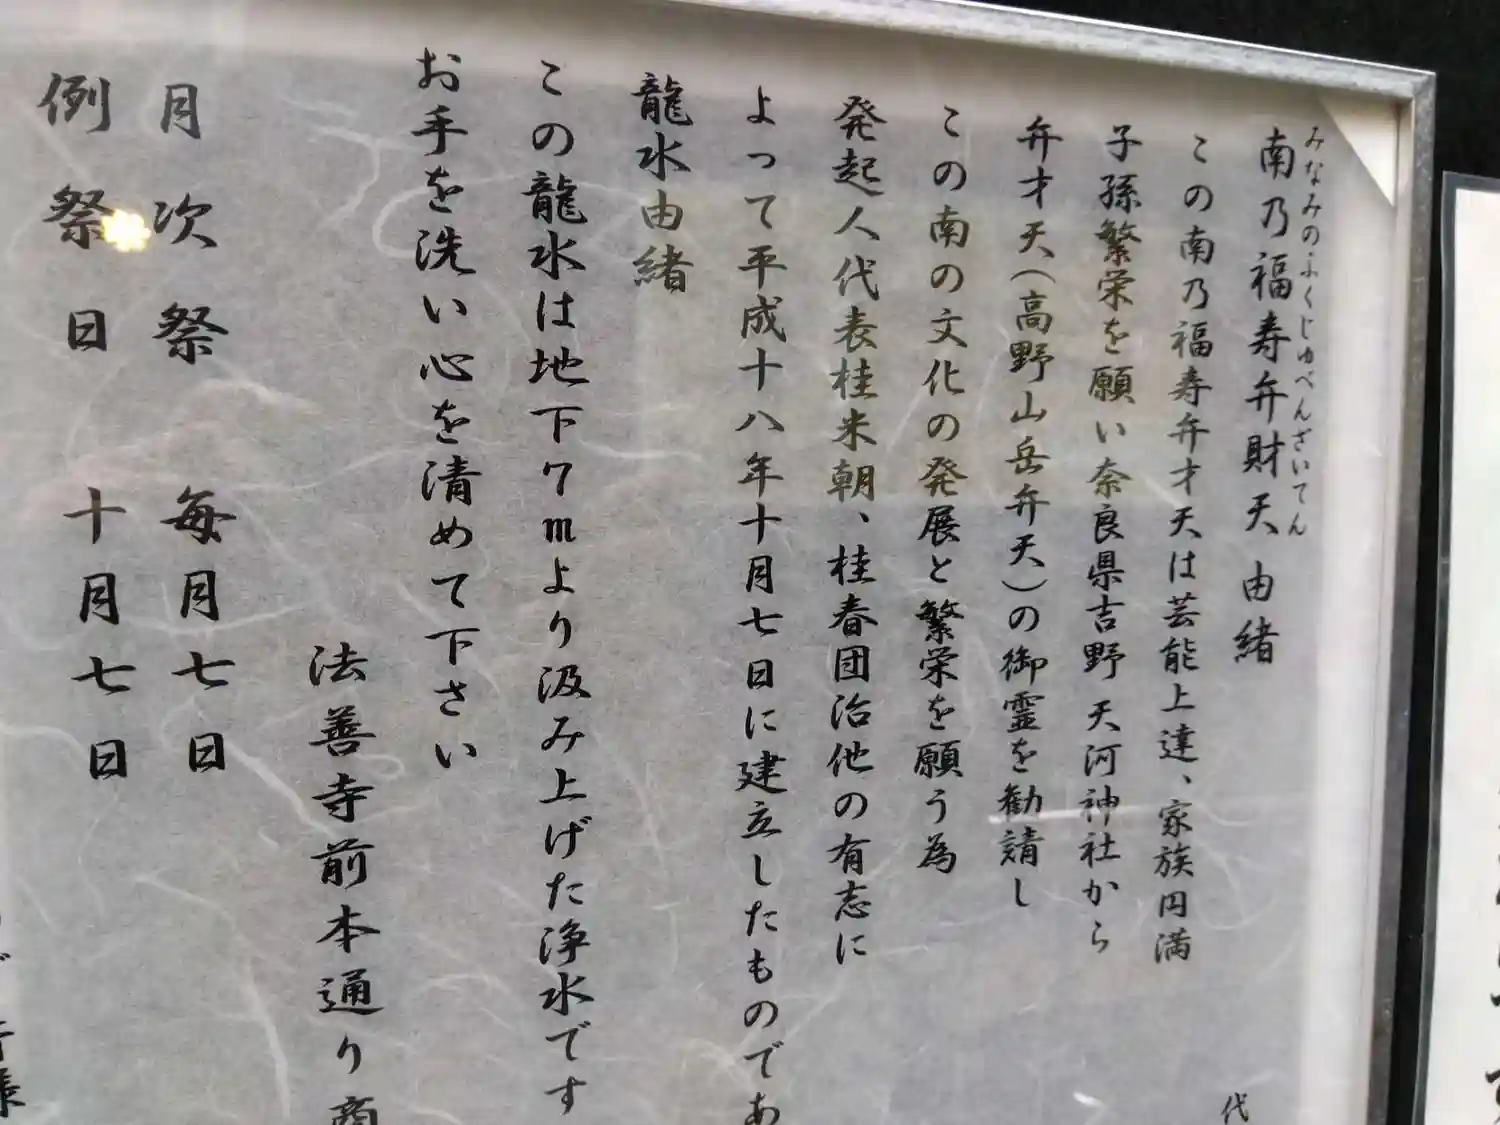 南乃福寿弁財天 由緒
みなみのふくじゅべんざいてん
この南乃福寿弁才天は芸能上達、家族円満
子孫繁栄を願い奈良県吉野 天河神社から
弁才天(高野山岳弁天)の御霊を勧請し
この南の文化の発展と繁栄を願う為
発起人代表桂米朝、桂春団治他の有志に
よって平成十八年十月七日に建立したものであ
龍水由緒
この龍水は地下7mより汲み上げた浄水です
お手を洗い心を清めて下さい
法善寺前本通り商
月次祭 毎月七日
例祭日 十月七日
代